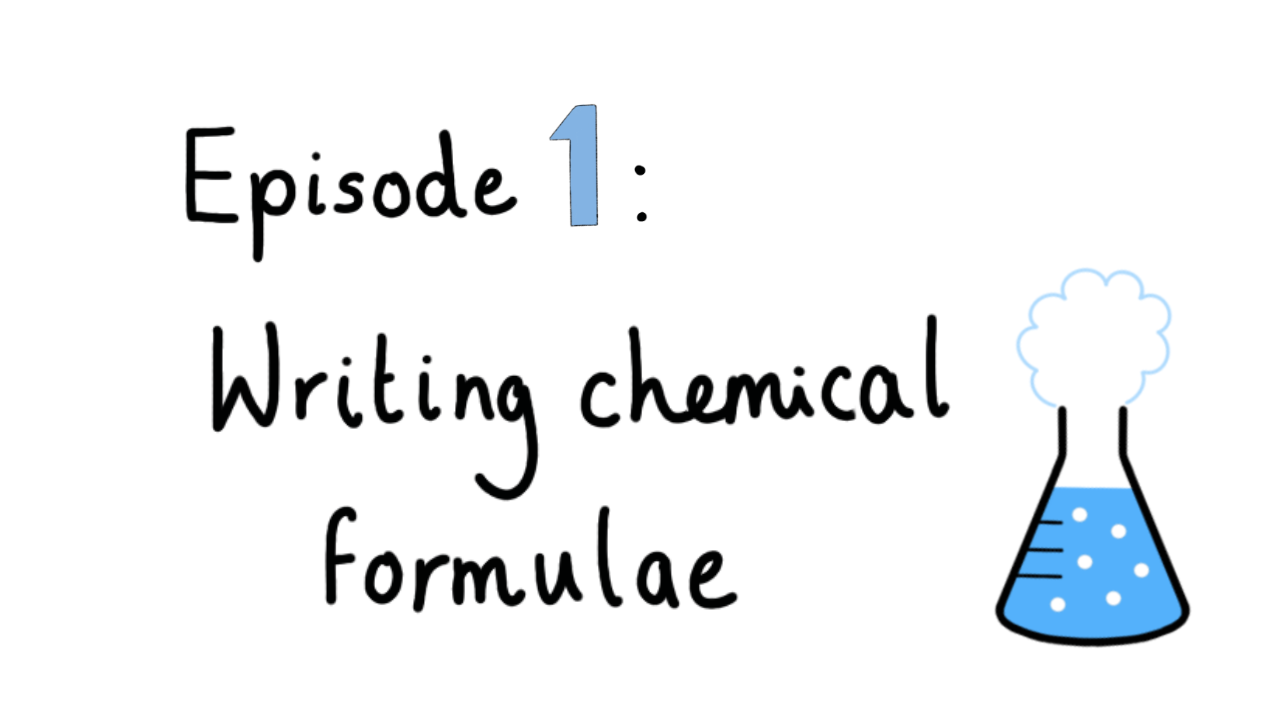 Episode 1:
Writing chemical
formulae